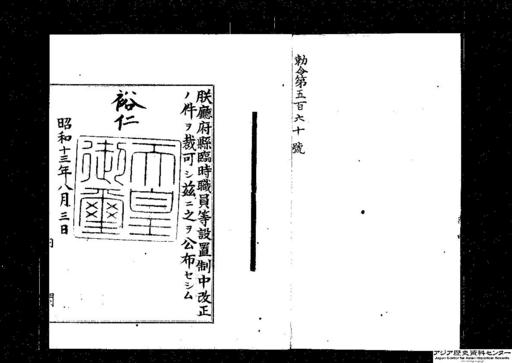 勅令第五百六十號
朕廳府縣臨時職員等設置制中改正
ノ件ヲ裁可シ茲ニ之ヲ公布セシム
裕仁
天皇
御璽
昭和十三年八月三日
内閣
アジア歴史資料センター
Japan Center for Asian Historical Records